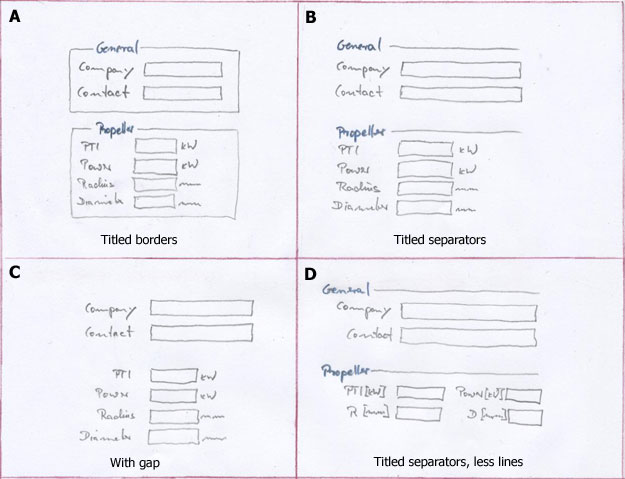 A
General
Company
Contact
Propeller
PTI kW
Power kW
Radius mm
Diameter mm
Titled borders
B
General
Company
Contact
Propeller
PTI kW
Power kW
Radius mm
Diameter mm
Titled separators
C
Company
Contact
PTI kW
Power kW
Radius mm
Diameter mm
With gap
D
General
Company
Contact
Propeller
PTI [kW] Power [kW]
R [mm] D [mm]
Titled separators, less lines